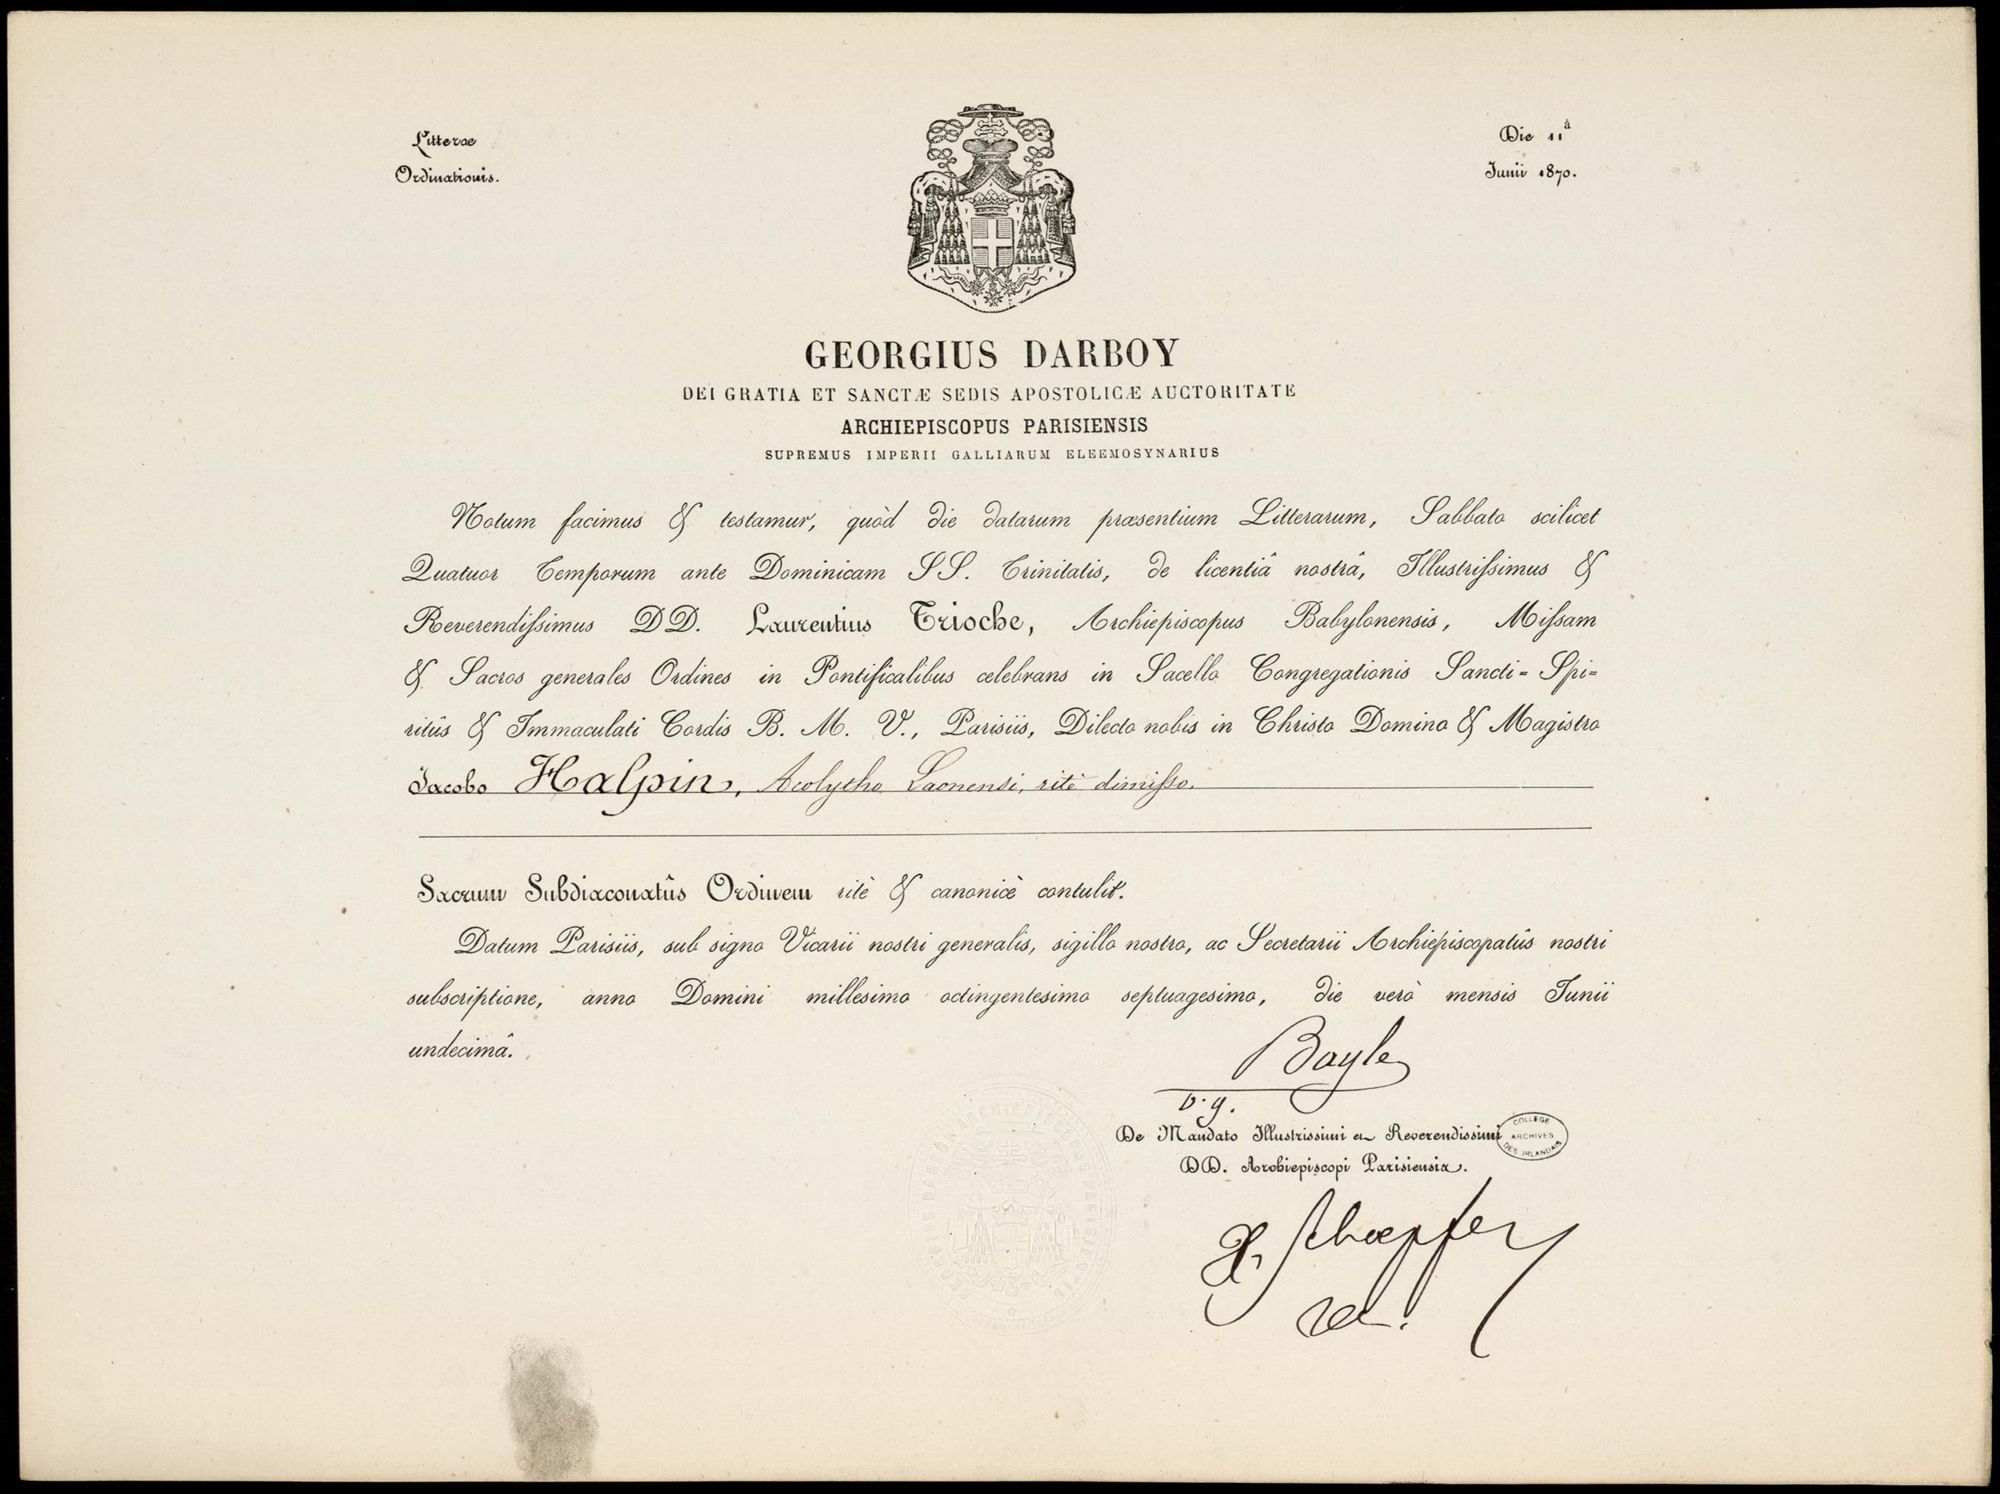 Litterae
Ordinationis.
Die 11â
Junii 1870.
GEORGIUS DARBOY
DEI GRATIA ET SANCTÆ SEDIS APOSTOLICÆ AUCTORITATE
ARCHIEPISCOPUS PARISIENSIS
SUPREMUS IMPERII GALLIARUM ELEEMOSYNARIUS
Notum facimus & testamur, quòd die datarum præsentium Litterarum, Sabbato scilicet
Quatuor Temporum ante Dominicam SS. Trinitatis, de licentiâ nostrâ, Illustrissimus &
Reverendissimus DD. Laurentius Trioche, Archiepiscopus Babylonensis, Missam
& Sacros generales Ordines in Pontificalibus celebrans in Sacello Congregationis Sancti-Spi-
ritûs & Immaculati Cordis B. M. V., Parisiis, Dilecto nobis in Christo Domino & Magistro
Jacobo Halpin, Acolytho Laonensi, ritè dimisso.
Sacrum Subdiaconatûs Ordinem ritè & canonicè contulit.
Datum Parisiis, sub signo Vicarii nostri generalis, sigillo nostro, ac Secretarii Archiepiscopatûs nostri
subscriptione, anno Domini millesimo octingentesimo septuagesimo, die verò mensis Junii
undecimâ.
Bayle
v. g.
De Mandato Illustrissimi et Reverendissimi
DD. Archiepiscopi Parisiensis.
COLLEGE
ARCHIVES
DES IRLANDAIS
Schoepfer